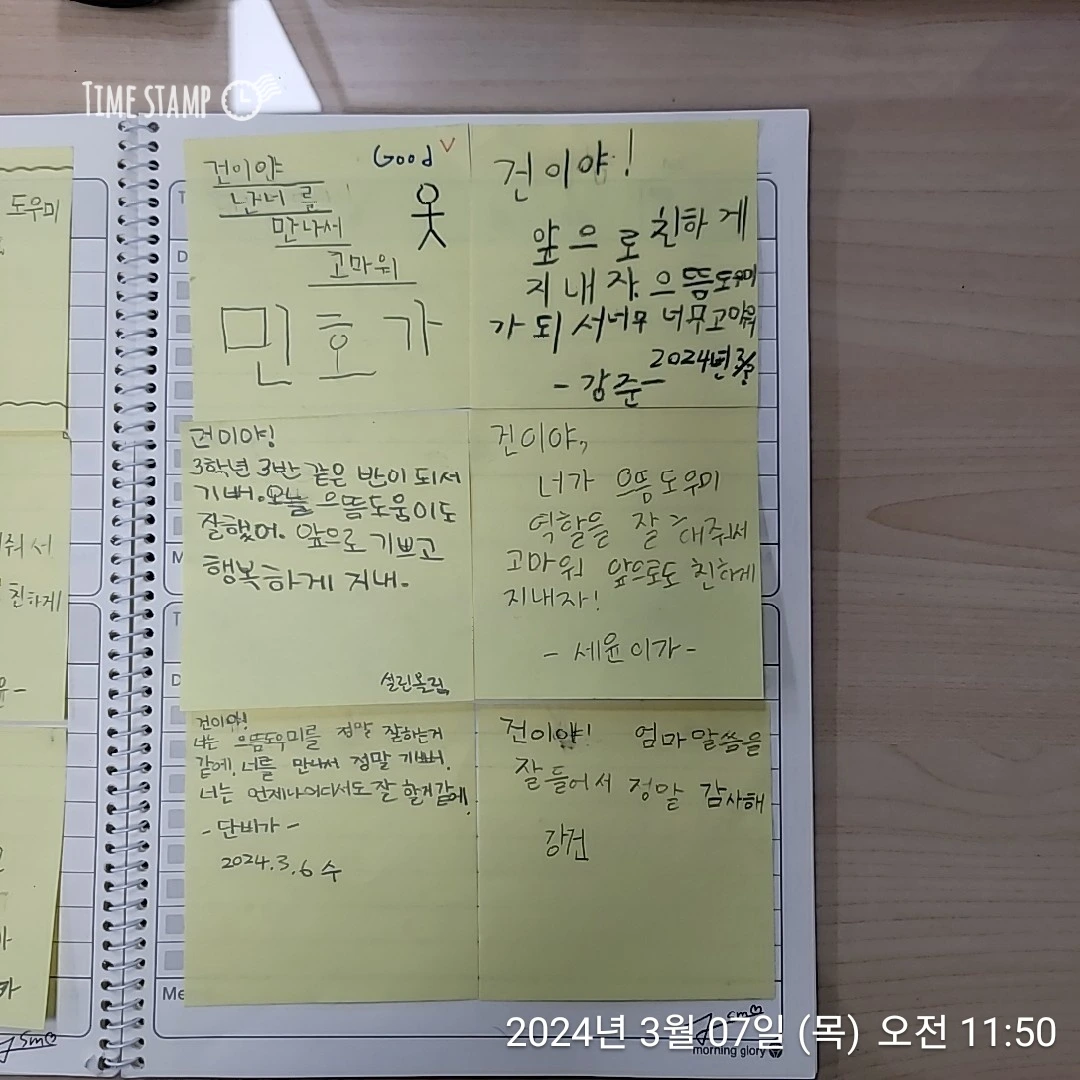 TIME STAMP
도우미
줘서
친하게
건이야
난 너를
만나서
고마워
민호가
Good
건이야!
앞으로 친하게
지내자. 으뜸도우미
가 되서 너무 너무 고마워
2024년 3/
-강준-
건이야!
3학년 3반 같은 반이 되서
기뻐. 오늘 으뜸도움이도
잘했어. 앞으로 기쁘고
행복하게 지내.
설린올림
건이야,
너가 으뜸도우미
역할을 잘 해줘서
고마워 앞으로도 친하게
지내자!
- 세윤이가 -
건이야!
너는 으뜸도우미를 정말 잘하는거
같에. 너를 만나서 정말 기뻐.
너는 언제나 어디서도 잘 할거 같에!
- 단비가 -
2024.3.6 수
건이야! 엄마 말씀을
잘 들어서 정말 감사해
강건
morning glory
2024년 3월 07일 (목) 오전 11:50